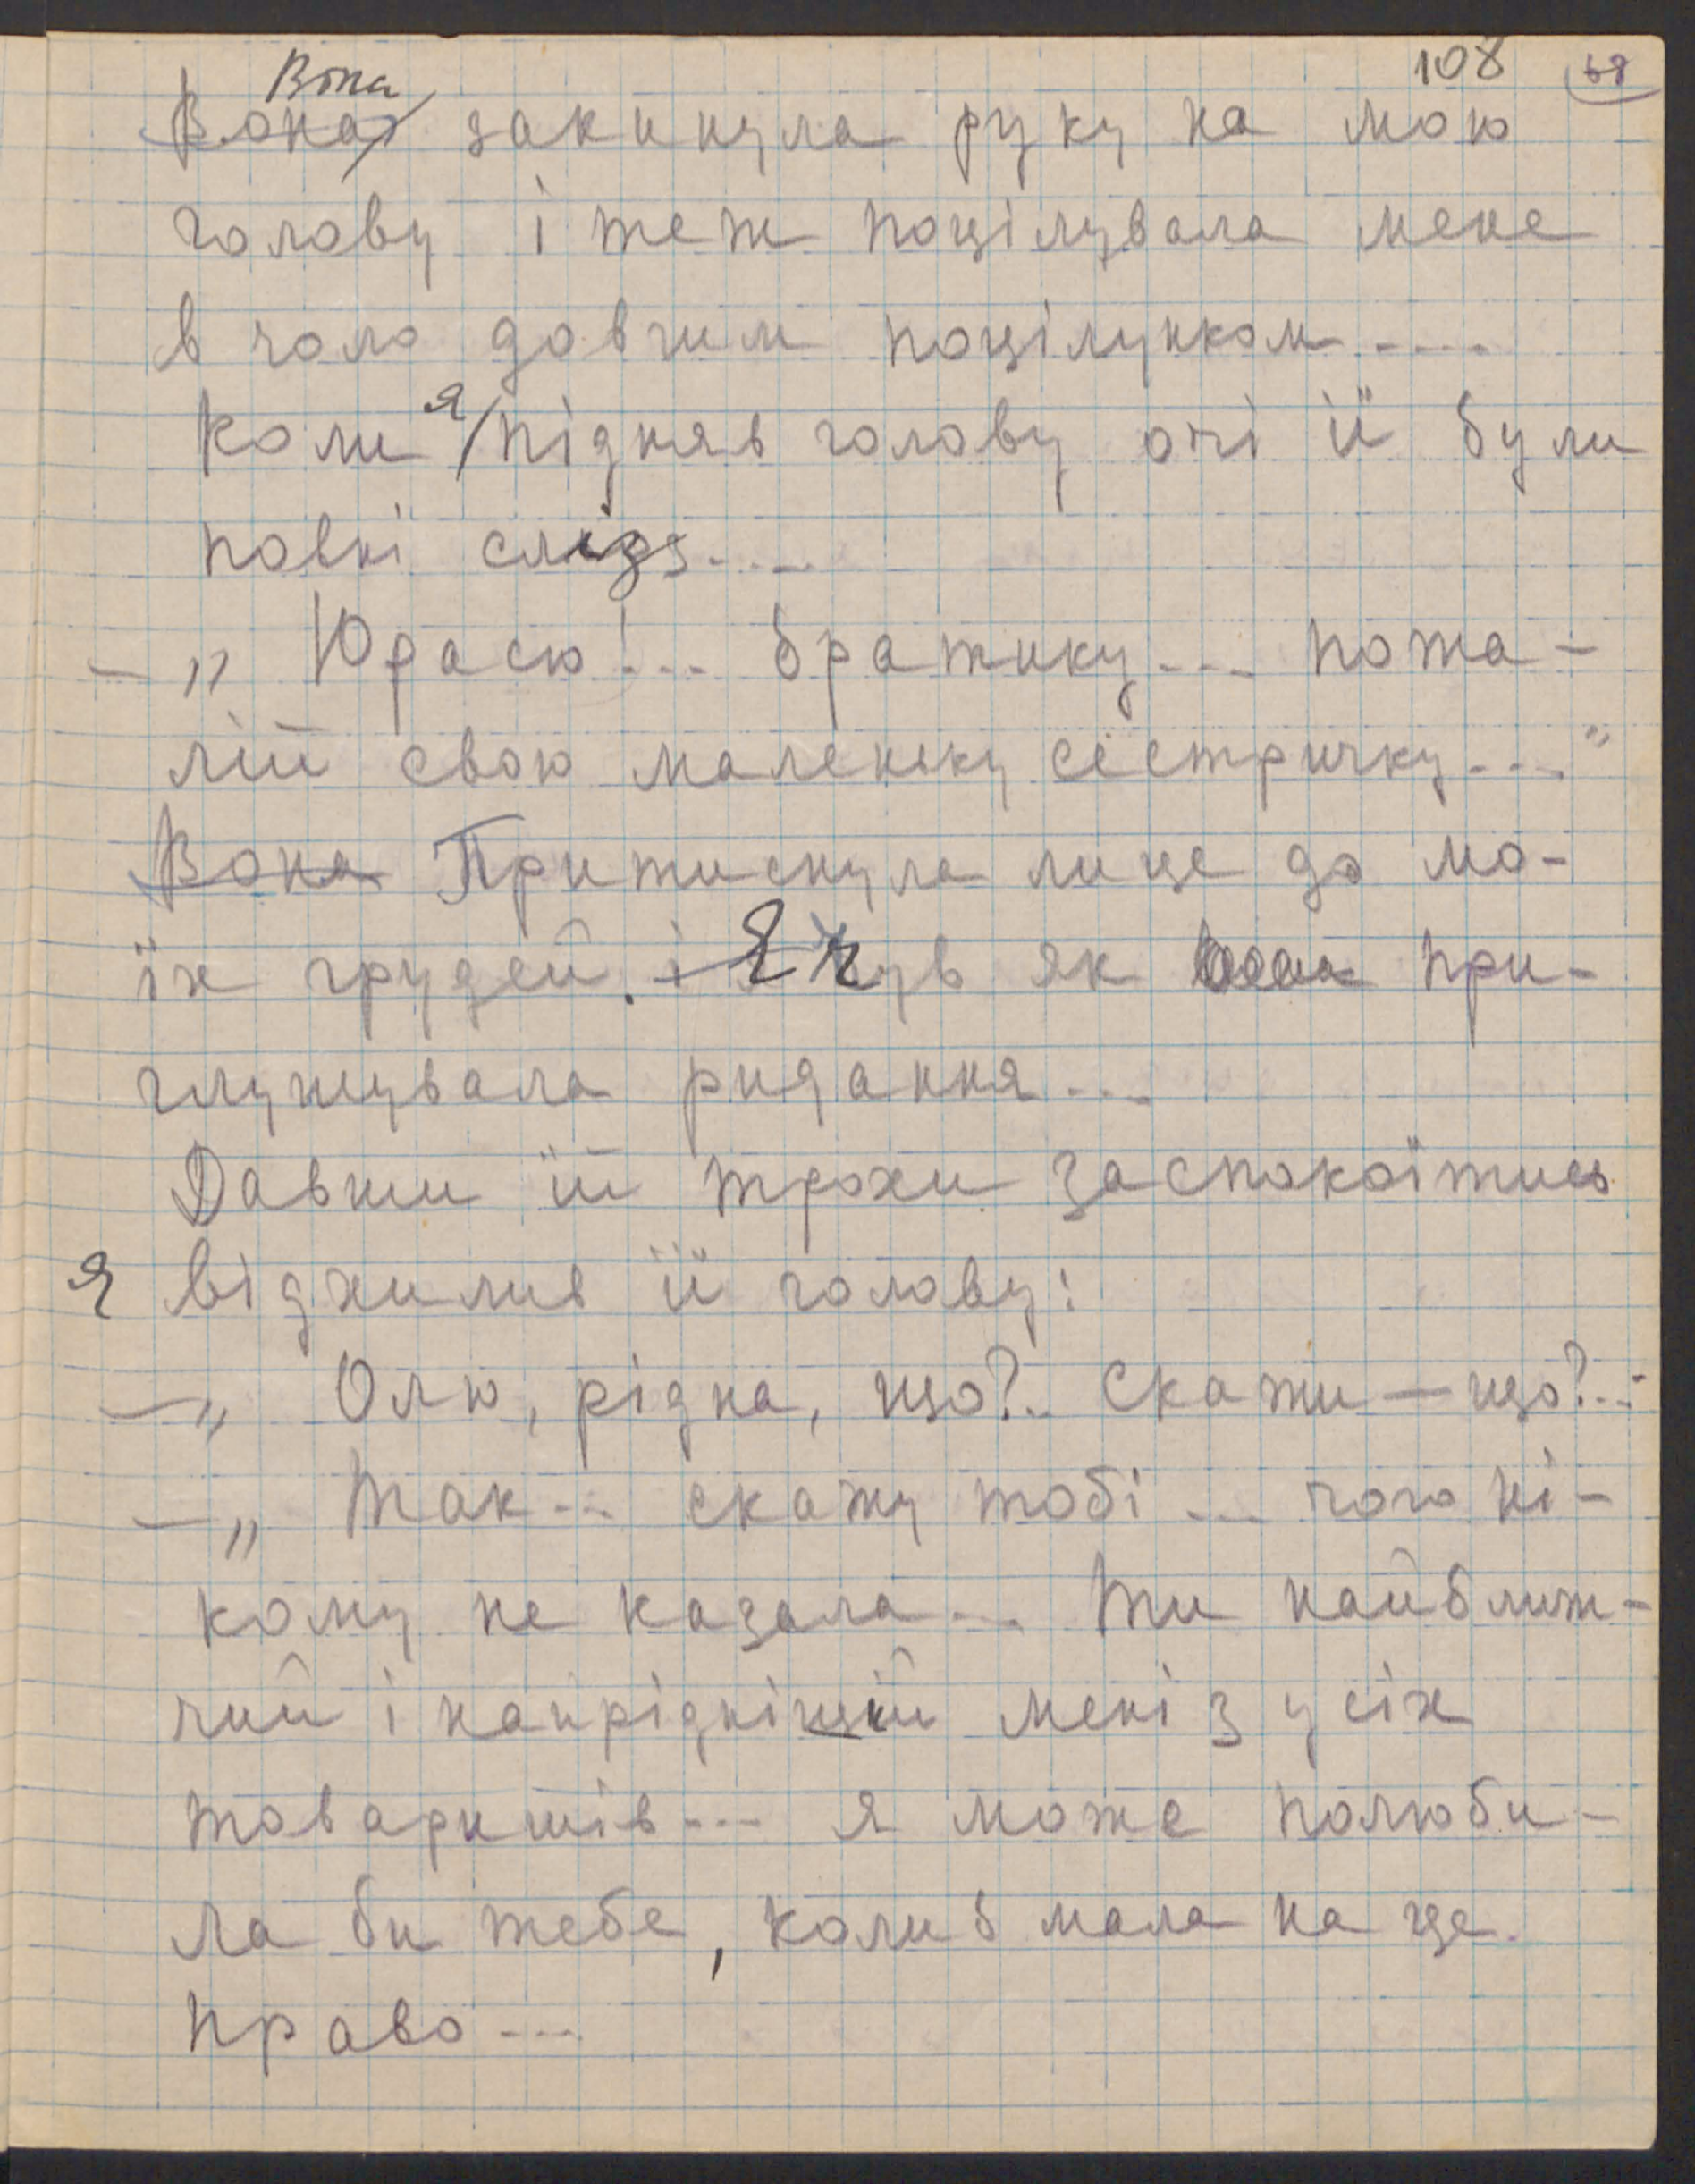 108 68
Вона
Вона закинула руку на мою
голову і теж поцілувала мене
в чоло довгим поцілунком....
Коли я підняв голову очі її були
повні сліз....
— „ Юрасю!... братику... пожа-
лій свою маленьку сестричку...."
Вона Притиснула лице до мо-
їх грудей. і Я чув як вона при-
глушувала ридання...
Давши їй трохи заспокоїтись
я відхилив її голову:
— „ Олю, рідна, що?.. Скажи — що?...
— „ Так... скажу тобі ... чого ні-
кому не казала... Ти найближ-
чий і найріднійший мені з усіх
товаришів... я може полюби-
ла би тебе, колиб мала на це
право...